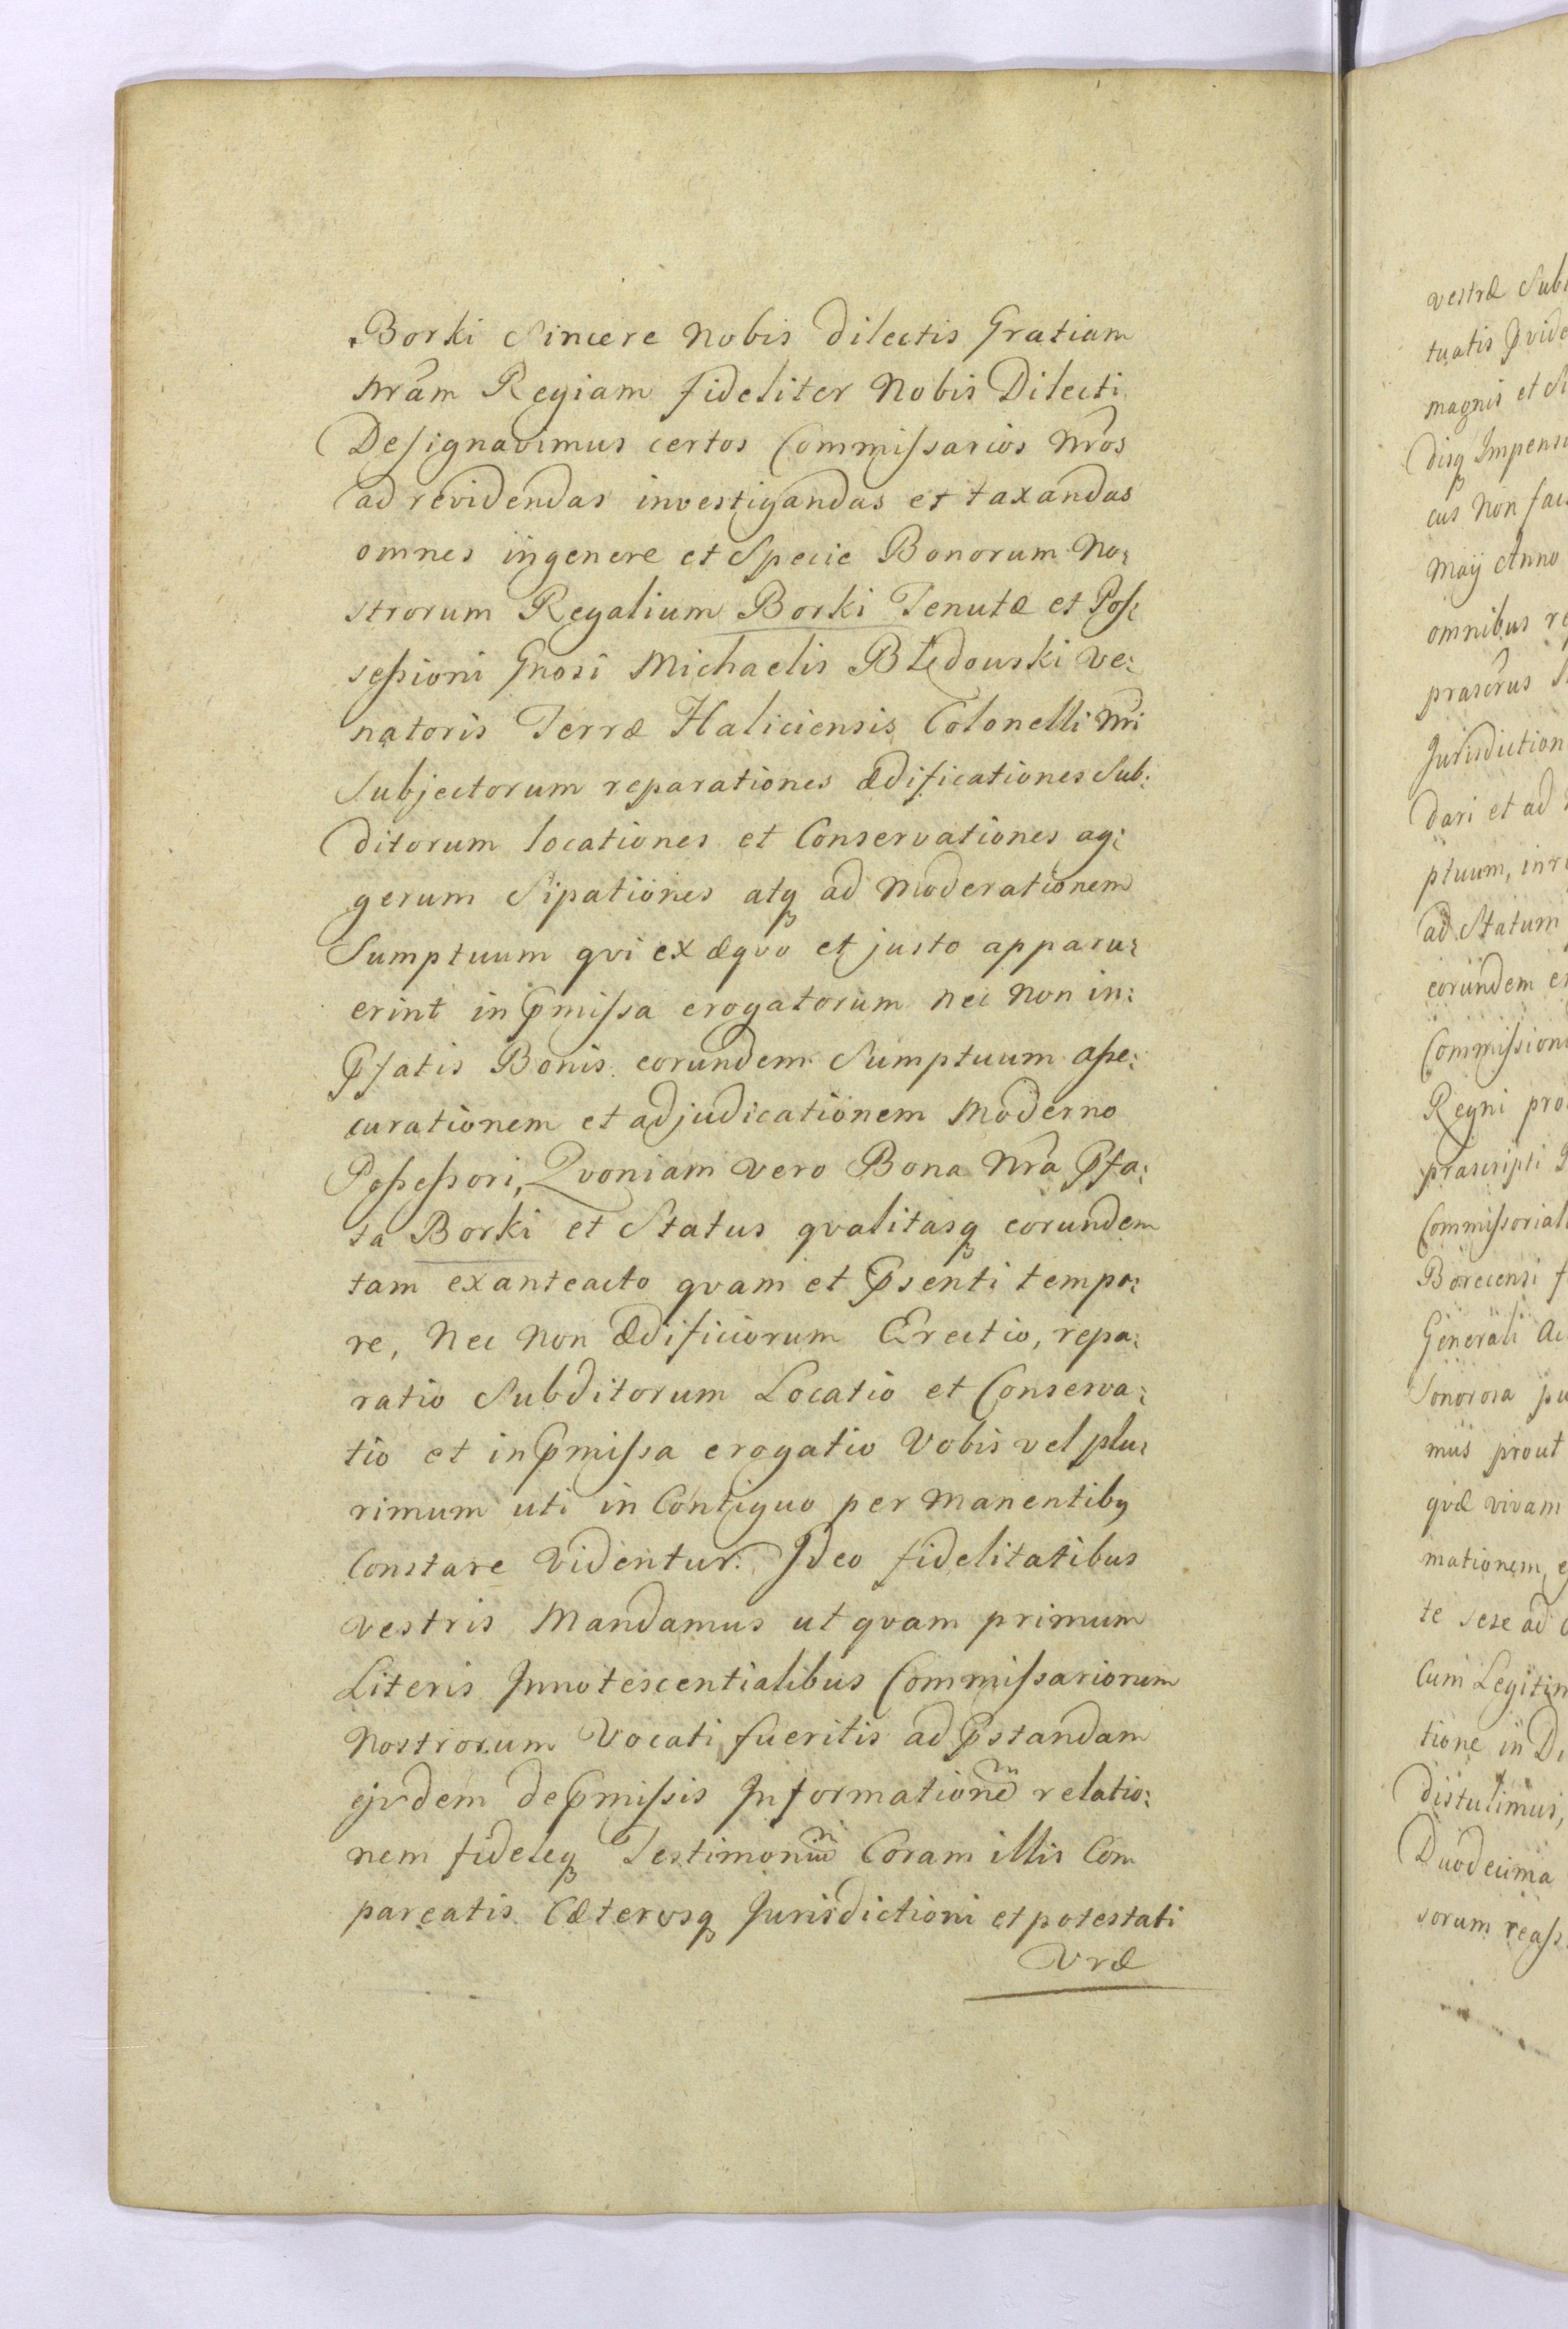 Borki Sincere Nobis dilectis Gratiam
Nrãm Regiam fideliter Nobis Dilecti
Designavimus certos Commissarios Nrõs
ad revidendas investigandas et taxandas
omnes ingenere et Specie Bonorum No:
strorum Regalium Borki Tenutæ et Pos:
sessioni Gnosi Michaelis Błędowski Ve:
natoris Terræ Haliciensis Colonelli Nrĩ
Subjectorum reparationes ædificationes Sub:
ditorum locationes et Conservationes ag:
gerum Sipationes atq̃ ad Moderationem
Sumptuum qvi ex æqvo et justo apparu:
erint in p̃missa erogatorum nec non in:
p̃fatis Bonis eorundem Sumptuum asse:
curationem et adjudicationem Moderno
Possessori, Qvoniam vero Bona Nrã p̃fa:
ta Borki et Status qvalitasq̃ eorundem
tam exanteacto qvam et p̃senti tempo:
re, Nec Non ædificiorum Erectio, repa:
ratio Subditorum Locatio et Conserva:
tio et in p̃missa erogatio Vobis vel plu:
rimum uti in Contiguo per Manentibq
Constare Videntur. Ideo fidelitatibus
vestris Mandamus ut qvam primum
Literis Innotescentialibus Commissariorum
Nostrorum Vocati fueritis ad p̃standam
ejvdem de p̃missis Informationẽ relatio:
nem fideleq̃ Testimoniũ Coram illis Com
pareatis Cæterosq̃ Jurisdictioni et potestati
Vræ
vestræ Sub
tuatis p̃vide
magnis et Si
disq̃ Impens
cus Non fac
Maÿ Anno
omnibus re
Jurisdiction
dari et ad
ptuum, in
ad Statum
eorundem e
Commission
Regni pro
præscripti
Commissorial
Borecensi f
Generali Ac
Sonorosa pu
mus prout
qvæ vivam
mationem e
te sese ad
Cum Legitim
tione in D
distulimus,
Duodecima
sorum reass